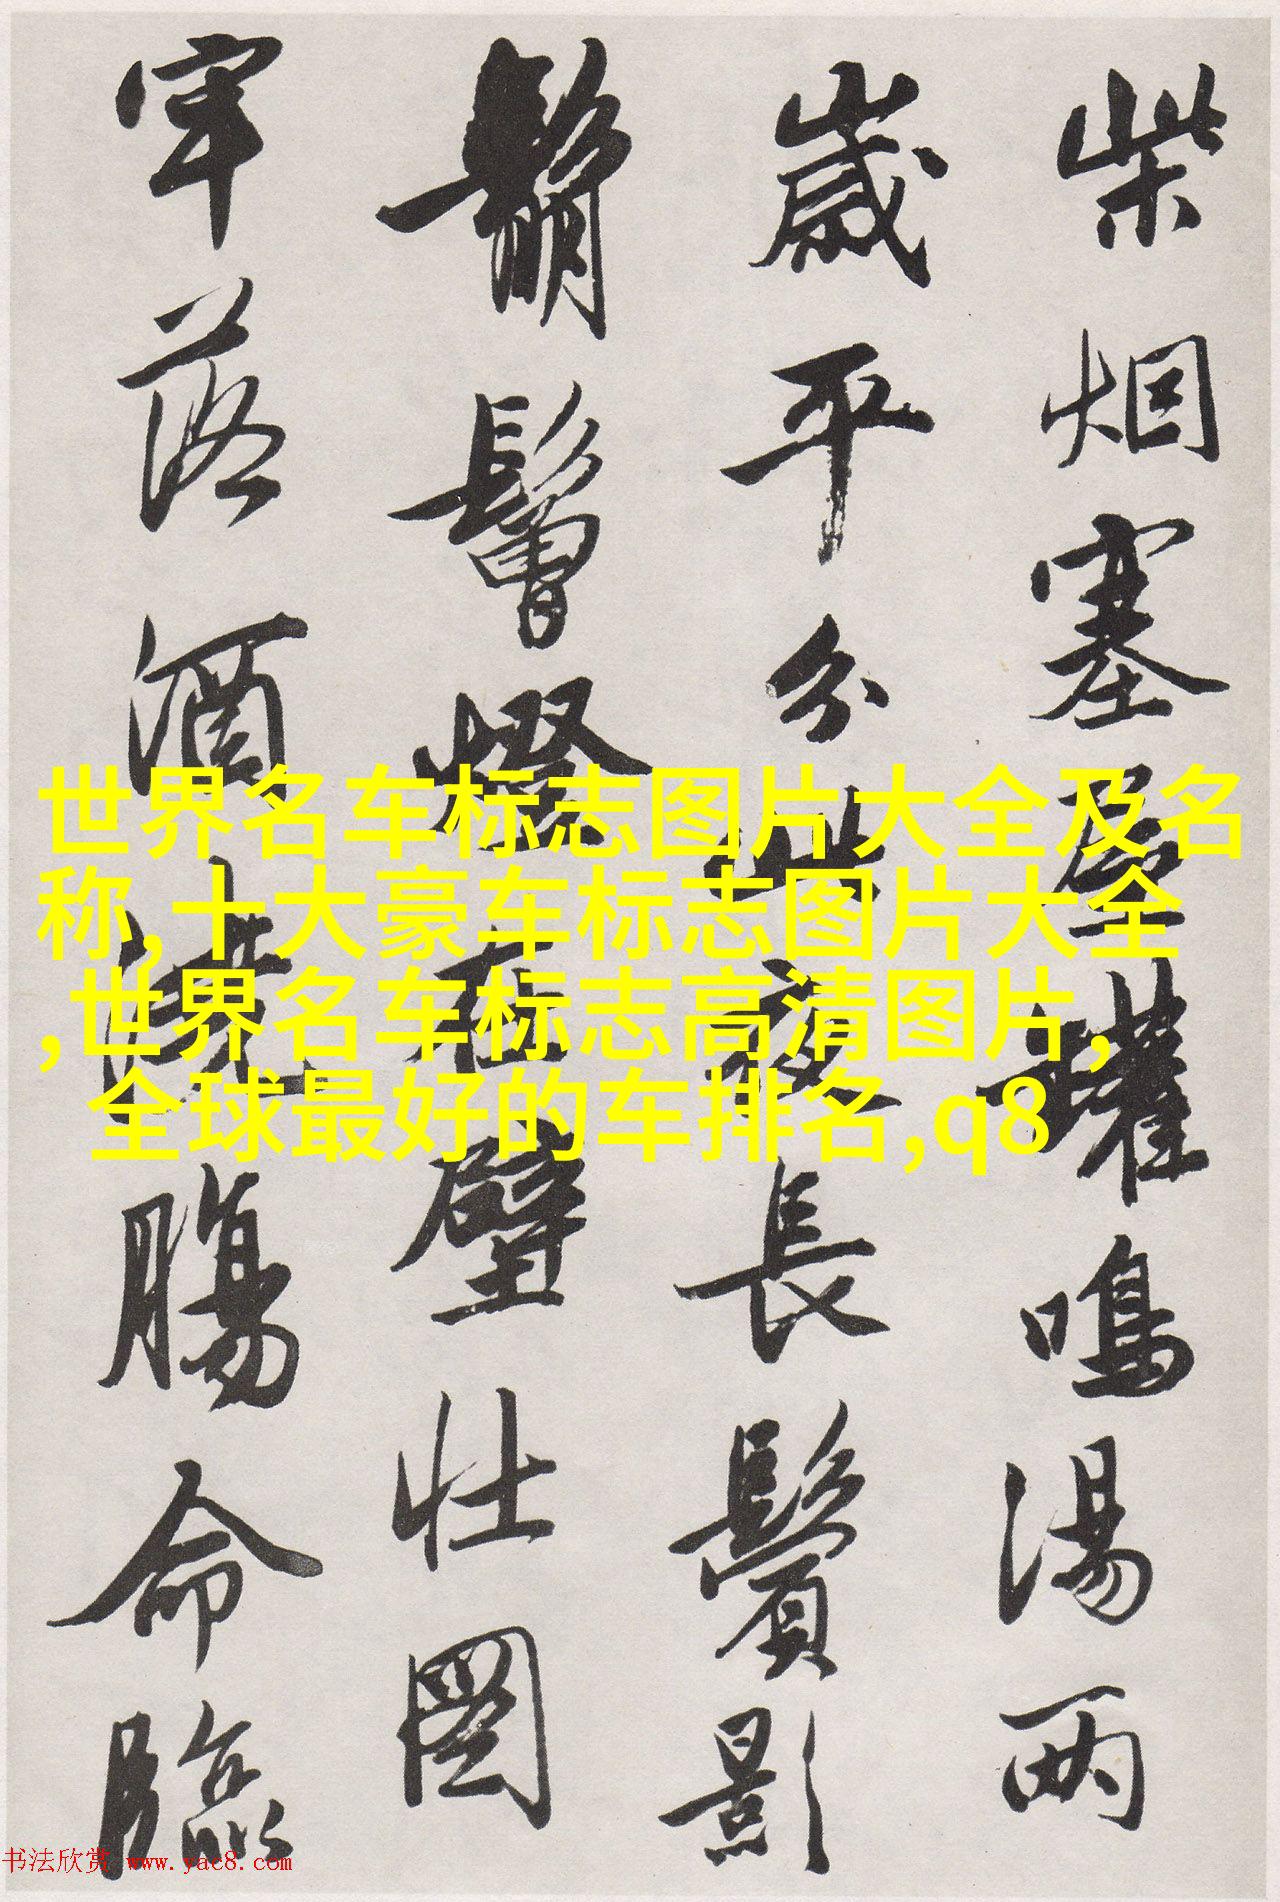 柴烟塞屋罐鳴湯兩
歲平分此夜長鬢影
鬅鬙燈在壁壯圖
牢落酒澆膓命臨
世界名车标志图片大全及名
称,十大豪车标志图片大全
,世界名车标志高清图片,
全球最好的车排名,q8
书法欣赏 www.yac8.com